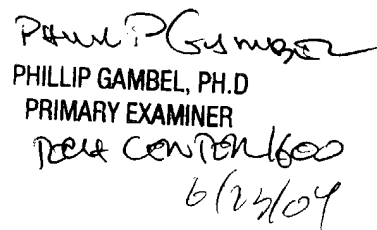 PHILLIP GAMBEL
PHILLIP GAMBEL, PH.D
PRIMARY EXAMINER
TECH CENTER 1600
6/23/04